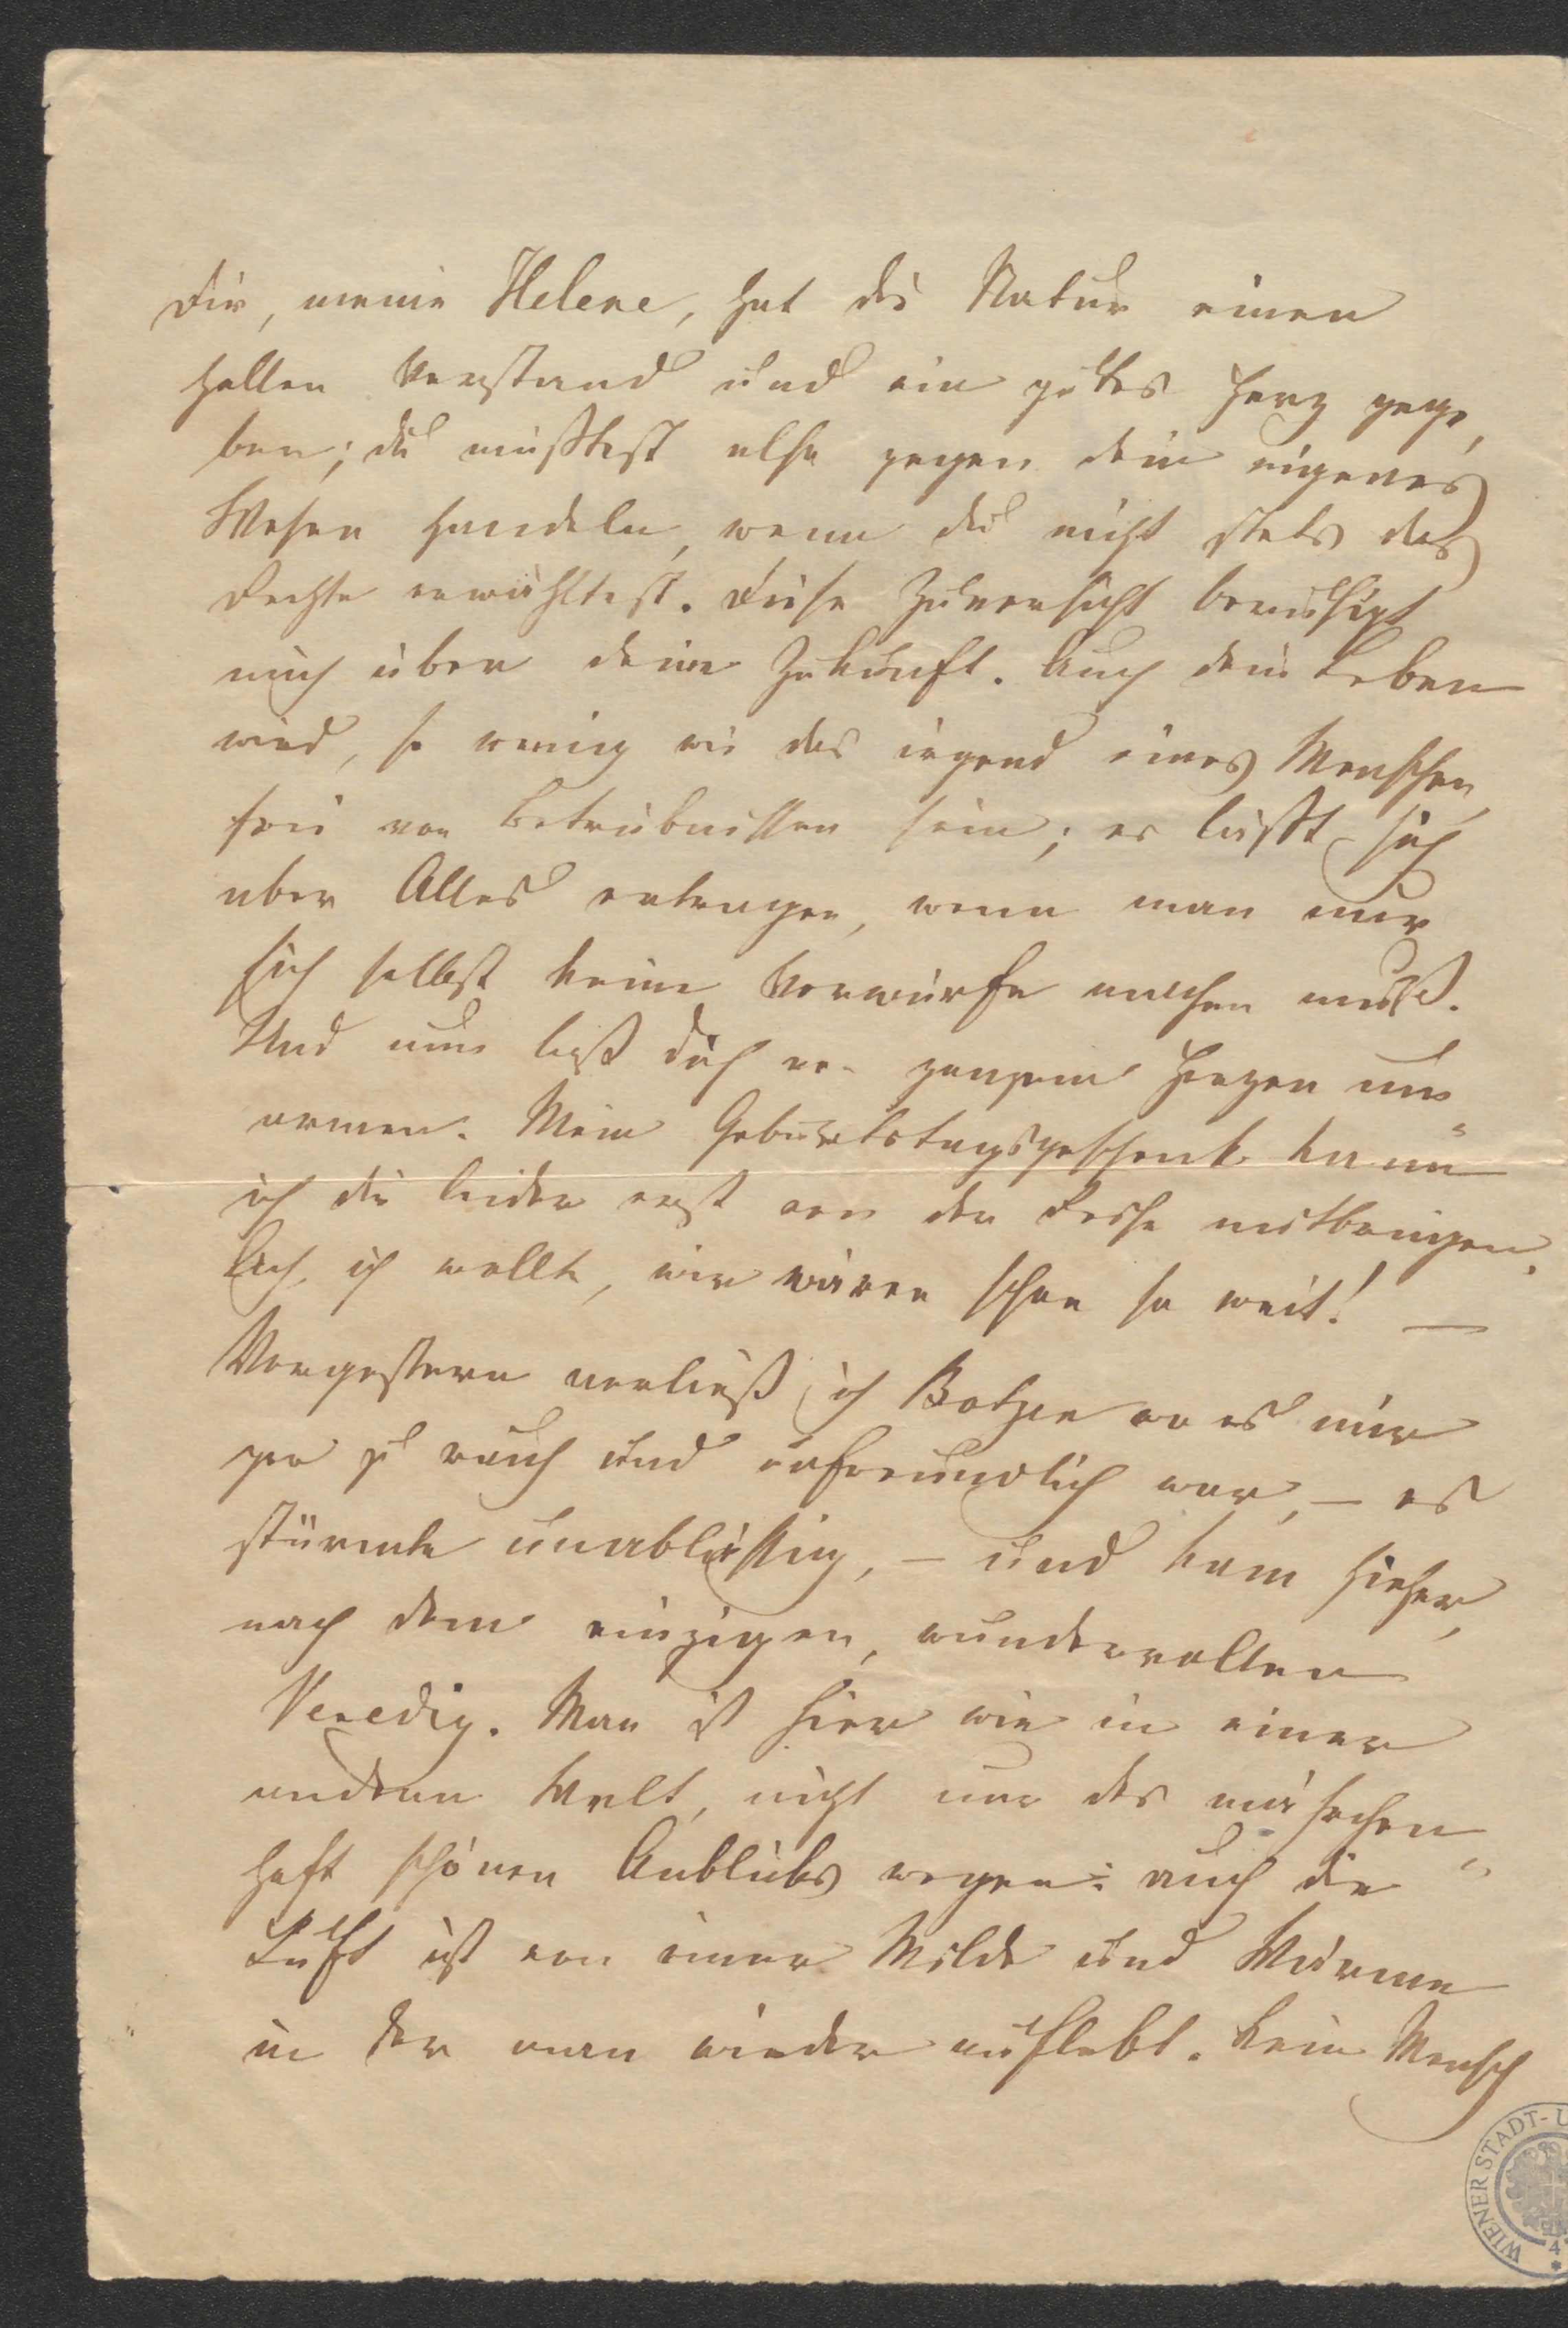 Dir, meine Helene, hat die Natur einen
hellen Verstand und ein gutes Herz gege-
ben; du müßtest also gegen dein eigenes
Wesen handeln, wenn du nicht stets das
Rechte erwähltest. Diese Zuversicht beruhigt
mich über deine Zukunft. Auch dein Leben
wird, so wenig wie das irgend eines Menschen,
frei von Betrübnissen sein; es läßt sich
aber Alles ertragen, wenn man nur
sich selbst keine Vorwürfe machen muß.
Und nun laß dich von ganzem Herzen um-
armen. Mein Geburtstagsgeschenk kann
ich dir leider erst von der Reise mitbringen.
Ach, ich wollte, wir wären schon so weit! —
Vorgestern verließ ich Botzen wo es mir
gar zu rauh und unfreundlich war, — es
stürmte unablässig, — und kam hieher,
nach dem einzigen, wundervollen
Venedig. Man ist hier wie in einer
andern Welt, nicht nur des märchen-
haft schönen Anblicks wegen: auch die
Luft ist von einer Milde und Wärme
in der man wieder auflebt. Kein Mensch
WIENER STADT-U
4